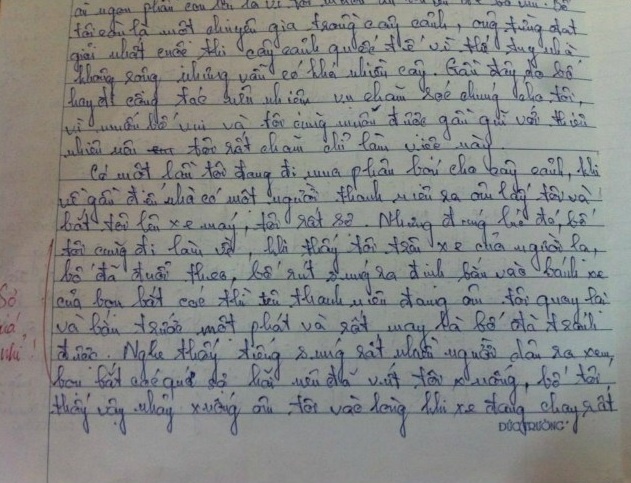 ai ngon phần còn lại là vì tôi
tôi còn là một chuyên gia trong cây cảnh, ông từng đạt
giải nhất cuộc thi cây cảnh quốc tế vì thế tuy nhà
không rộng nhưng vẫn có khá nhiều cây. Gần đây do bố
hay đi công tác nên nhiệm vụ chăm sóc chúng cho tôi,
vì muốn bố vui và tôi cũng muốn được gần gũi với thiên
nhiên nên tôi rất chăm chỉ làm việc này
Có một lần tôi đang đi mua phân bón cho cây cảnh, khi
về gần đến nhà có một người thanh niên ra ôm lấy tôi và
bắt tôi lên xe máy, tôi rất sợ. Nhưng đúng lúc đó, bố
tôi cũng đi làm về, khi thấy tôi trên xe của người lạ,
bố đã đuổi theo, bố rút súng ra định bắn vào bánh xe
của bọn bắt cóc thì tên thanh niên đang ôm tôi quay lại
và bắn trước một phát và rất may là bố đã tránh
được. Nghe thấy tiếng súng rất nhiều người dân ra xem,
bọn bắt cóc quá sợ hãi nên đã vứt tôi xuống, bố tôi
thấy vậy nhảy xuống ôm tôi vào lòng khi xe đang chạy rất
Sợ
quá
nhỉ!
ĐỨC TRƯỜNG